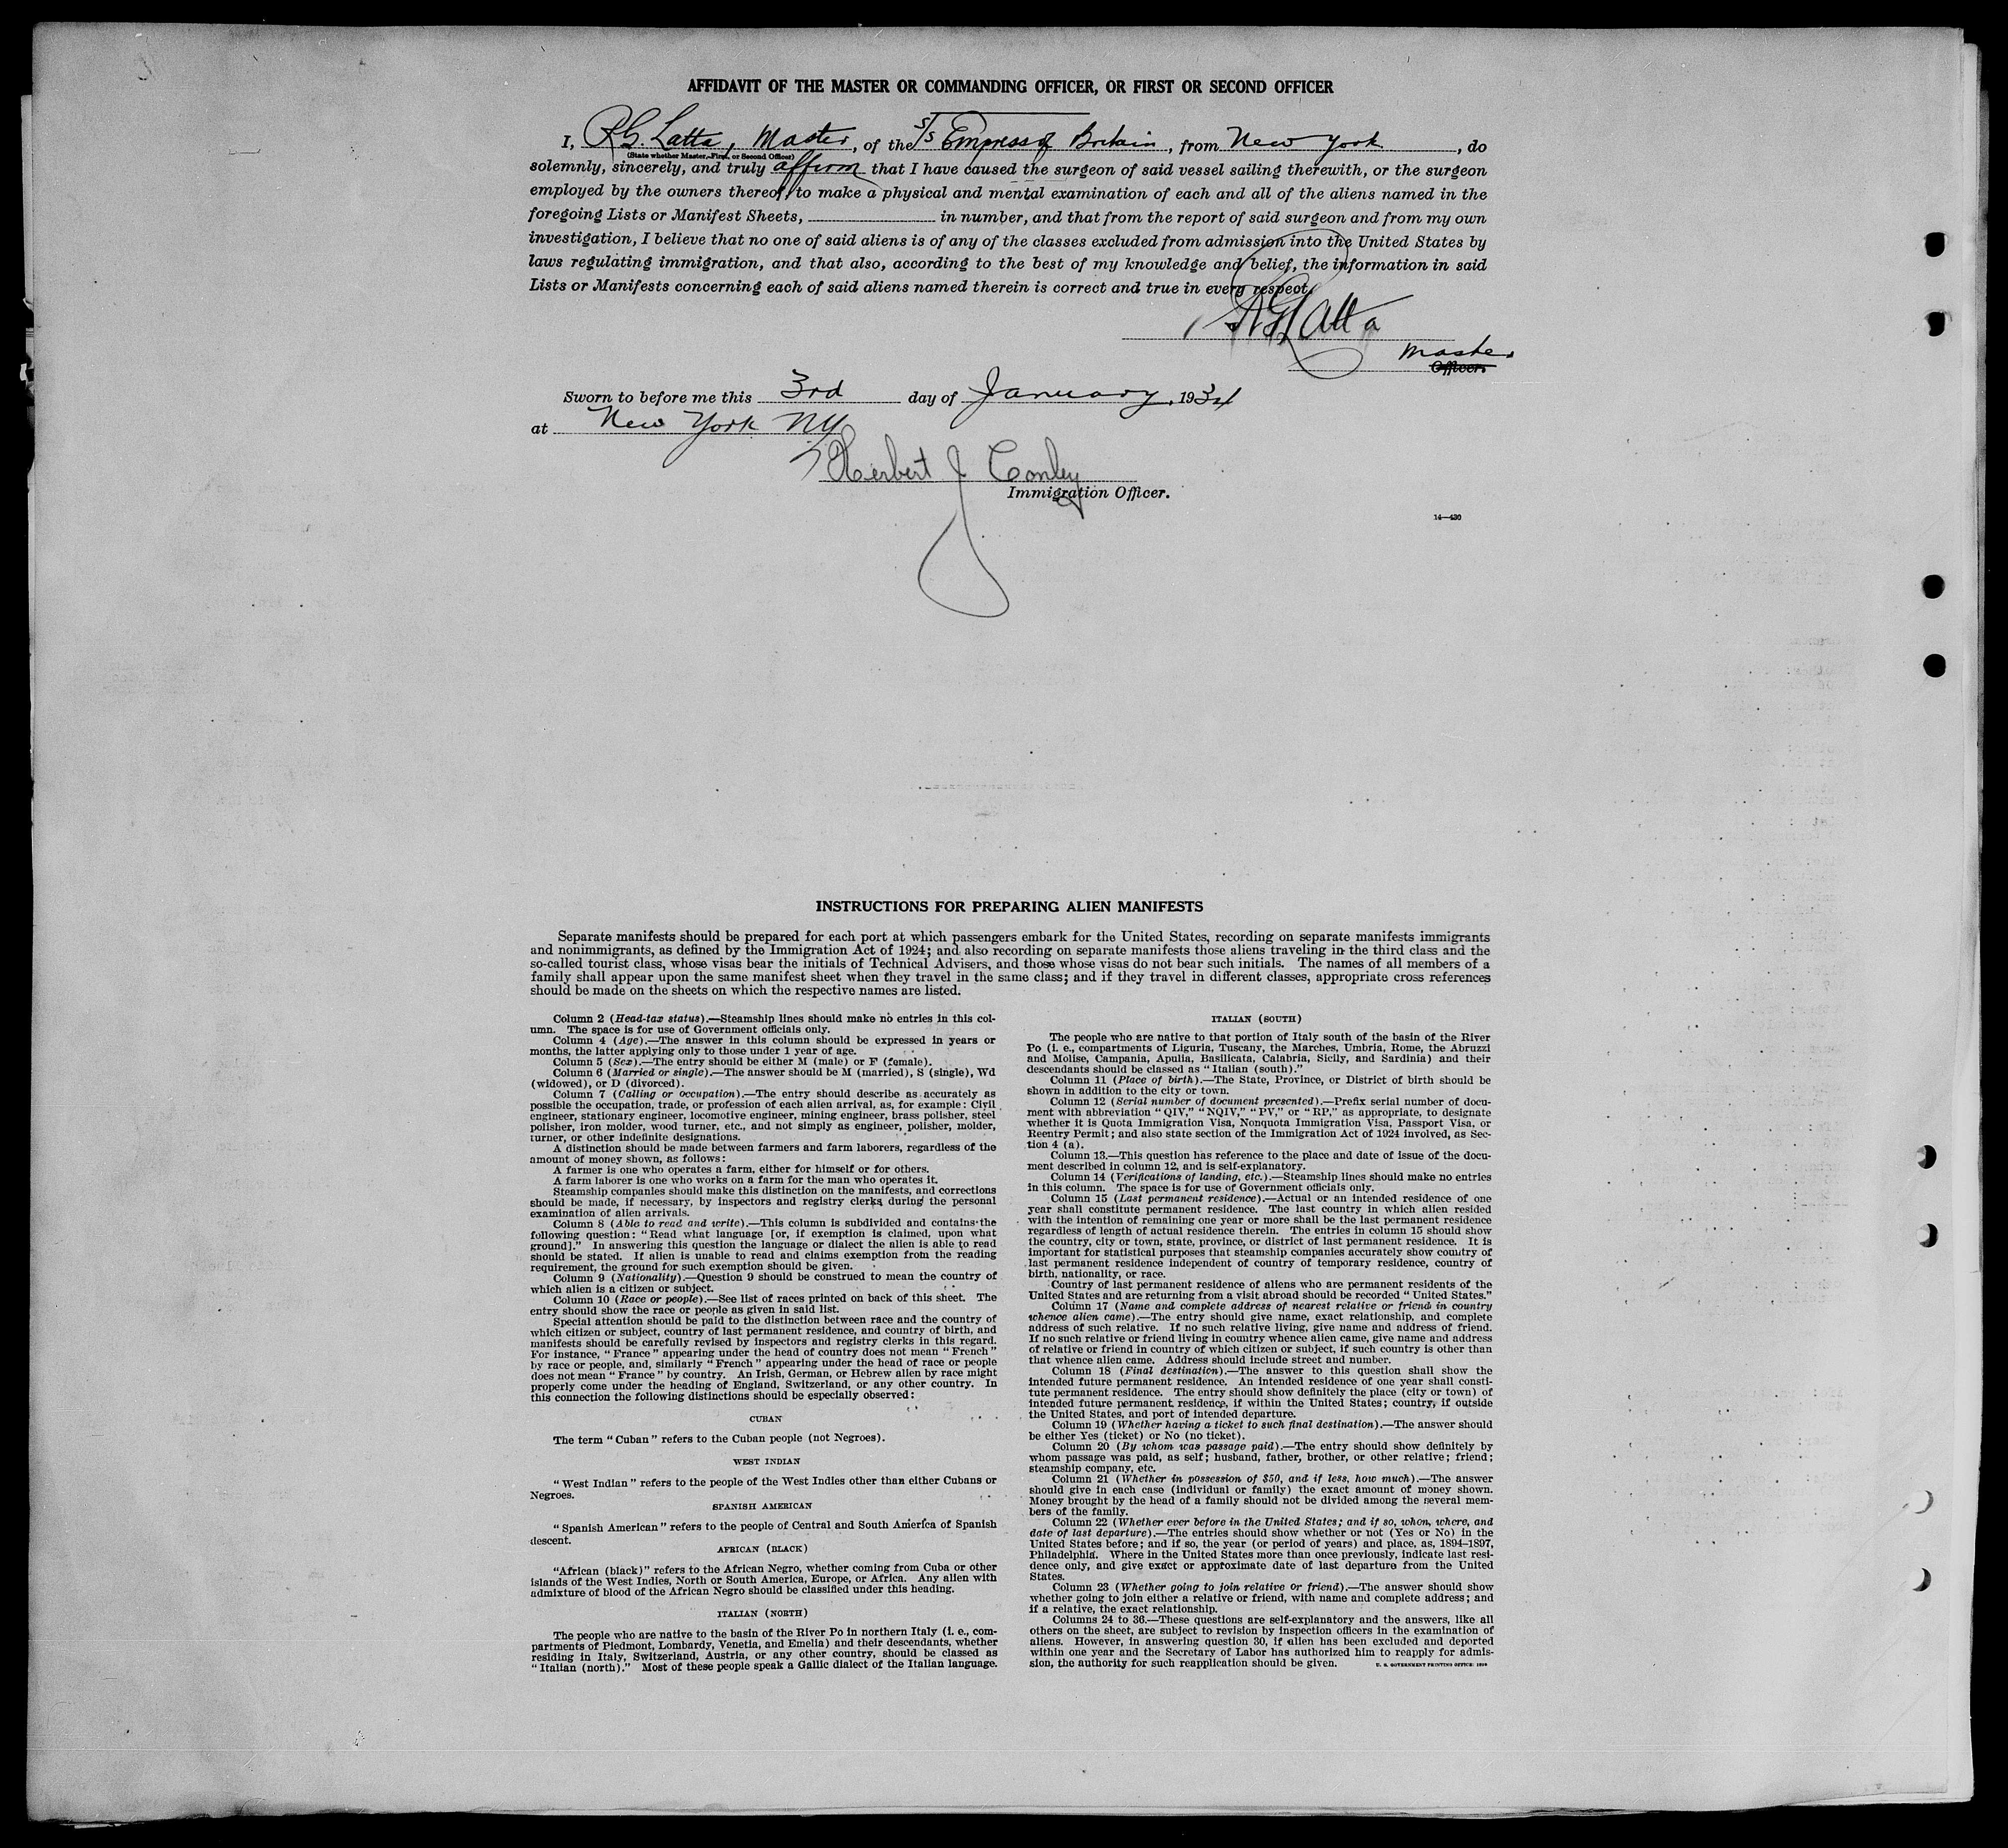 AFFIDAVIT OF THE MASTER OR COMMANDING OFFICER, OR FIRST OR SECOND OFFICER
I, R.G. Latta, Master, of the S/S Empress of Britain, from New York, do
(State whether Master, First, or Second Officer)
solemnly, sincerely, and truly affirm that I have caused the surgeon of said vessel sailing therewith, or the surgeon
employed by the owners thereof, to make a physical and mental examination of each and all of the aliens named in the
foregoing Lists or Manifest Sheets, in number, and that from the report of said surgeon and from my own
investigation, I believe that no one of said aliens is of any of the classes excluded from admission into the United States by
laws regulating immigration, and that also, according to the best of my knowledge and belief, the information in said
Lists or Manifests concerning each of said aliens named therein is correct and true in every respect.
R G Latta
Master
Officer.
Sworn to before me this 3rd day of January, 1934
at New York NY
Herbert J Conley
Immigration Officer.
14—430
INSTRUCTIONS FOR PREPARING ALIEN MANIFESTS
Separate manifests should be prepared for each port at which passengers embark for the United States, recording on separate manifests immigrants
and nonimmigrants, as defined by the Immigration Act of 1924; and also recording on separate manifests those aliens traveling in the third class and the
so-called tourist class, whose visas bear the initials of Technical Advisers, and those whose visas do not bear such initials. The names of all members of a
family shall appear upon the same manifest sheet when they travel in the same class; and if they travel in different classes, appropriate cross references
should be made on the sheets on which the respective names are listed.
Column 2 (Head-tax status).—Steamship lines should make no entries in this col-
umn. The space is for use of Government officials only.
Column 4 (Age).—The answer in this column should be expressed in years or
months, the latter applying only to those under 1 year of age.
Column 5 (Sex).—The entry should be either M (male) or F (female).
Column 6 (Married or single).—The answer should be M (married), S (single), Wd
(widowed), or D (divorced).
Column 7 (Calling or occupation).—The entry should describe as accurately as
possible the occupation, trade, or profession of each alien arrival, as, for example: Civil
engineer, stationary engineer, locomotive engineer, mining engineer, brass polisher, steel
polisher, iron molder, wood turner, etc., and not simply as engineer, polisher, molder,
turner, or other indefinite designations.
A distinction should be made between farmers and farm laborers, regardless of the
amount of money shown, as follows:
A farmer is one who operates a farm, either for himself or for others.
A farm laborer is one who works on a farm for the man who operates it.
Steamship companies should make this distinction on the manifests, and corrections
should be made, if necessary, by inspectors and registry clerks during the personal
examination of alien arrivals.
Column 8 (Able to read and write).—This column is subdivided and contains the
following question: "Read what language [or, if exemption is claimed, upon what
ground]." In answering this question the language or dialect the alien is able to read
should be stated. If alien is unable to read and claims exemption from the reading
requirement, the ground for such exemption should be given.
Column 9 (Nationality).—Question 9 should be construed to mean the country of
which alien is a citizen or subject.
Column 10 (Race or people).—See list of races printed on back of this sheet. The
entry should show the race or people as given in said list.
Special attention should be paid to the distinction between race and the country of
which citizen or subject, country of last permanent residence, and country of birth, and
manifests should be carefully revised by inspectors and registry clerks in this regard.
For instance, "France" appearing under the head of country does not mean "French"
by race or people, and, similarly "French" appearing under the head of race or people
does not mean "France" by country. An Irish, German, or Hebrew alien by race might
properly come under the heading of England, Switzerland, or any other country. In
this connection the following distinctions should be especially observed:
CUBAN
The term "Cuban" refers to the Cuban people (not Negroes).
WEST INDIAN
"West Indian" refers to the people of the West Indies other than either Cubans or
Negroes.
SPANISH AMERICAN
"Spanish American" refers to the people of Central and South America of Spanish
descent.
AFRICAN (BLACK)
"African (black)" refers to the African Negro, whether coming from Cuba or other
islands of the West Indies, North or South America, Europe, or Africa. Any alien with
admixture of blood of the African Negro should be classified under this heading.
ITALIAN (NORTH)
The people who are native to the basin of the River Po in northern Italy (i. e., com-
partments of Piedmont, Lombardy, Venetia, and Emelia) and their descendants, whether
residing in Italy, Switzerland, Austria, or any other country, should be classed as
"Italian (north)." Most of these people speak a Gallic dialect of the Italian language.
ITALIAN (SOUTH)
The people who are native to that portion of Italy south of the basin of the River
Po (i. e., compartments of Liguria, Tuscany, the Marches, Umbria, Rome, the Abruzzi
and Molise, Campania, Apulia, Basilicata, Calabria, Sicily, and Sardinia) and their
descendants should be classed as "Italian (south)."
Column 11 (Place of birth).—The State, Province, or District of birth should be
shown in addition to the city or town.
Column 12 (Serial number of document presented).—Prefix serial number of docu-
ment with abbreviation "QIV," "NQIV," "PV," or "RP," as appropriate, to designate
whether it is Quota Immigration Visa, Nonquota Immigration Visa, Passport Visa, or
Reentry Permit; and also state section of the Immigration Act of 1924 involved, as Sec-
tion 4 (a).
Column 13.—This question has reference to the place and date of issue of the docu-
ment described in column 12, and is self-explanatory.
Column 14 (Verifications of landing, etc.).—Steamship lines should make no entries
in this column. The space is for use of Government officials only.
Column 15 (Last permanent residence).—Actual or an intended residence of one
year shall constitute permanent residence. The last country in which alien resided
with the intention of remaining one year or more shall be the last permanent residence
regardless of length of actual residence therein. The entries in column 15 should show
the country, city or town, state, province, or district of last permanent residence. It is
important for statistical purposes that steamship companies accurately show country of
last permanent residence independent of country of temporary residence, country of
birth, nationality, or race.
Country of last permanent residence of aliens who are permanent residents of the
United States and are returning from a visit abroad should be recorded "United States."
Column 17 (Name and complete address of nearest relative or friend in country
whence alien came).—The entry should give name, exact relationship, and complete
address of such relative. If no such relative living, give name and address of friend.
If no such relative or friend living in country whence alien came, give name and address
of relative or friend in country of which citizen or subject, if such country is other than
that whence alien came. Address should include street and number.
Column 18 (Final destination).—The answer to this question shall show the
intended future permanent residence. An intended residence of one year shall consti-
tute permanent residence. The entry should show definitely the place (city or town) of
intended future permanent residence, if within the United States; country, if outside
the United States, and port of intended departure.
Column 19 (Whether having a ticket to such final destination).—The answer should
be either Yes (ticket) or No (no ticket).
Column 20 (By whom was passage paid).—The entry should show definitely by
whom passage was paid, as self; husband, father, brother, or other relative; friend;
steamship company, etc.
Column 21 (Whether in possession of $50, and if less, how much).—The answer
should give in each case (individual or family) the exact amount of money shown.
Money brought by the head of a family should not be divided among the several mem-
bers of the family.
Column 22 (Whether ever before in the United States; and if so, when, where, and
date of last departure).—The entries should show whether or not (Yes or No) in the
United States before; and if so, the year (or period of years) and place, as, 1894–1897,
Philadelphia. Where in the United States more than once previously, indicate last resi-
dence only, and give exact or approximate date of last departure from the United
States.
Column 23 (Whether going to join relative or friend).—The answer should show
whether going to join either a relative or friend, with name and complete address; and
if a relative, the exact relationship.
Columns 24 to 36.—These questions are self-explanatory and the answers, like all
others on the sheet, are subject to revision by inspection officers in the examination of
aliens. However, in answering question 30, if alien has been excluded and deported
within one year and the Secretary of Labor has authorized him to reapply for admis-
sion, the authority for such reapplication should be given. U. S. GOVERNMENT PRINTING OFFICE: